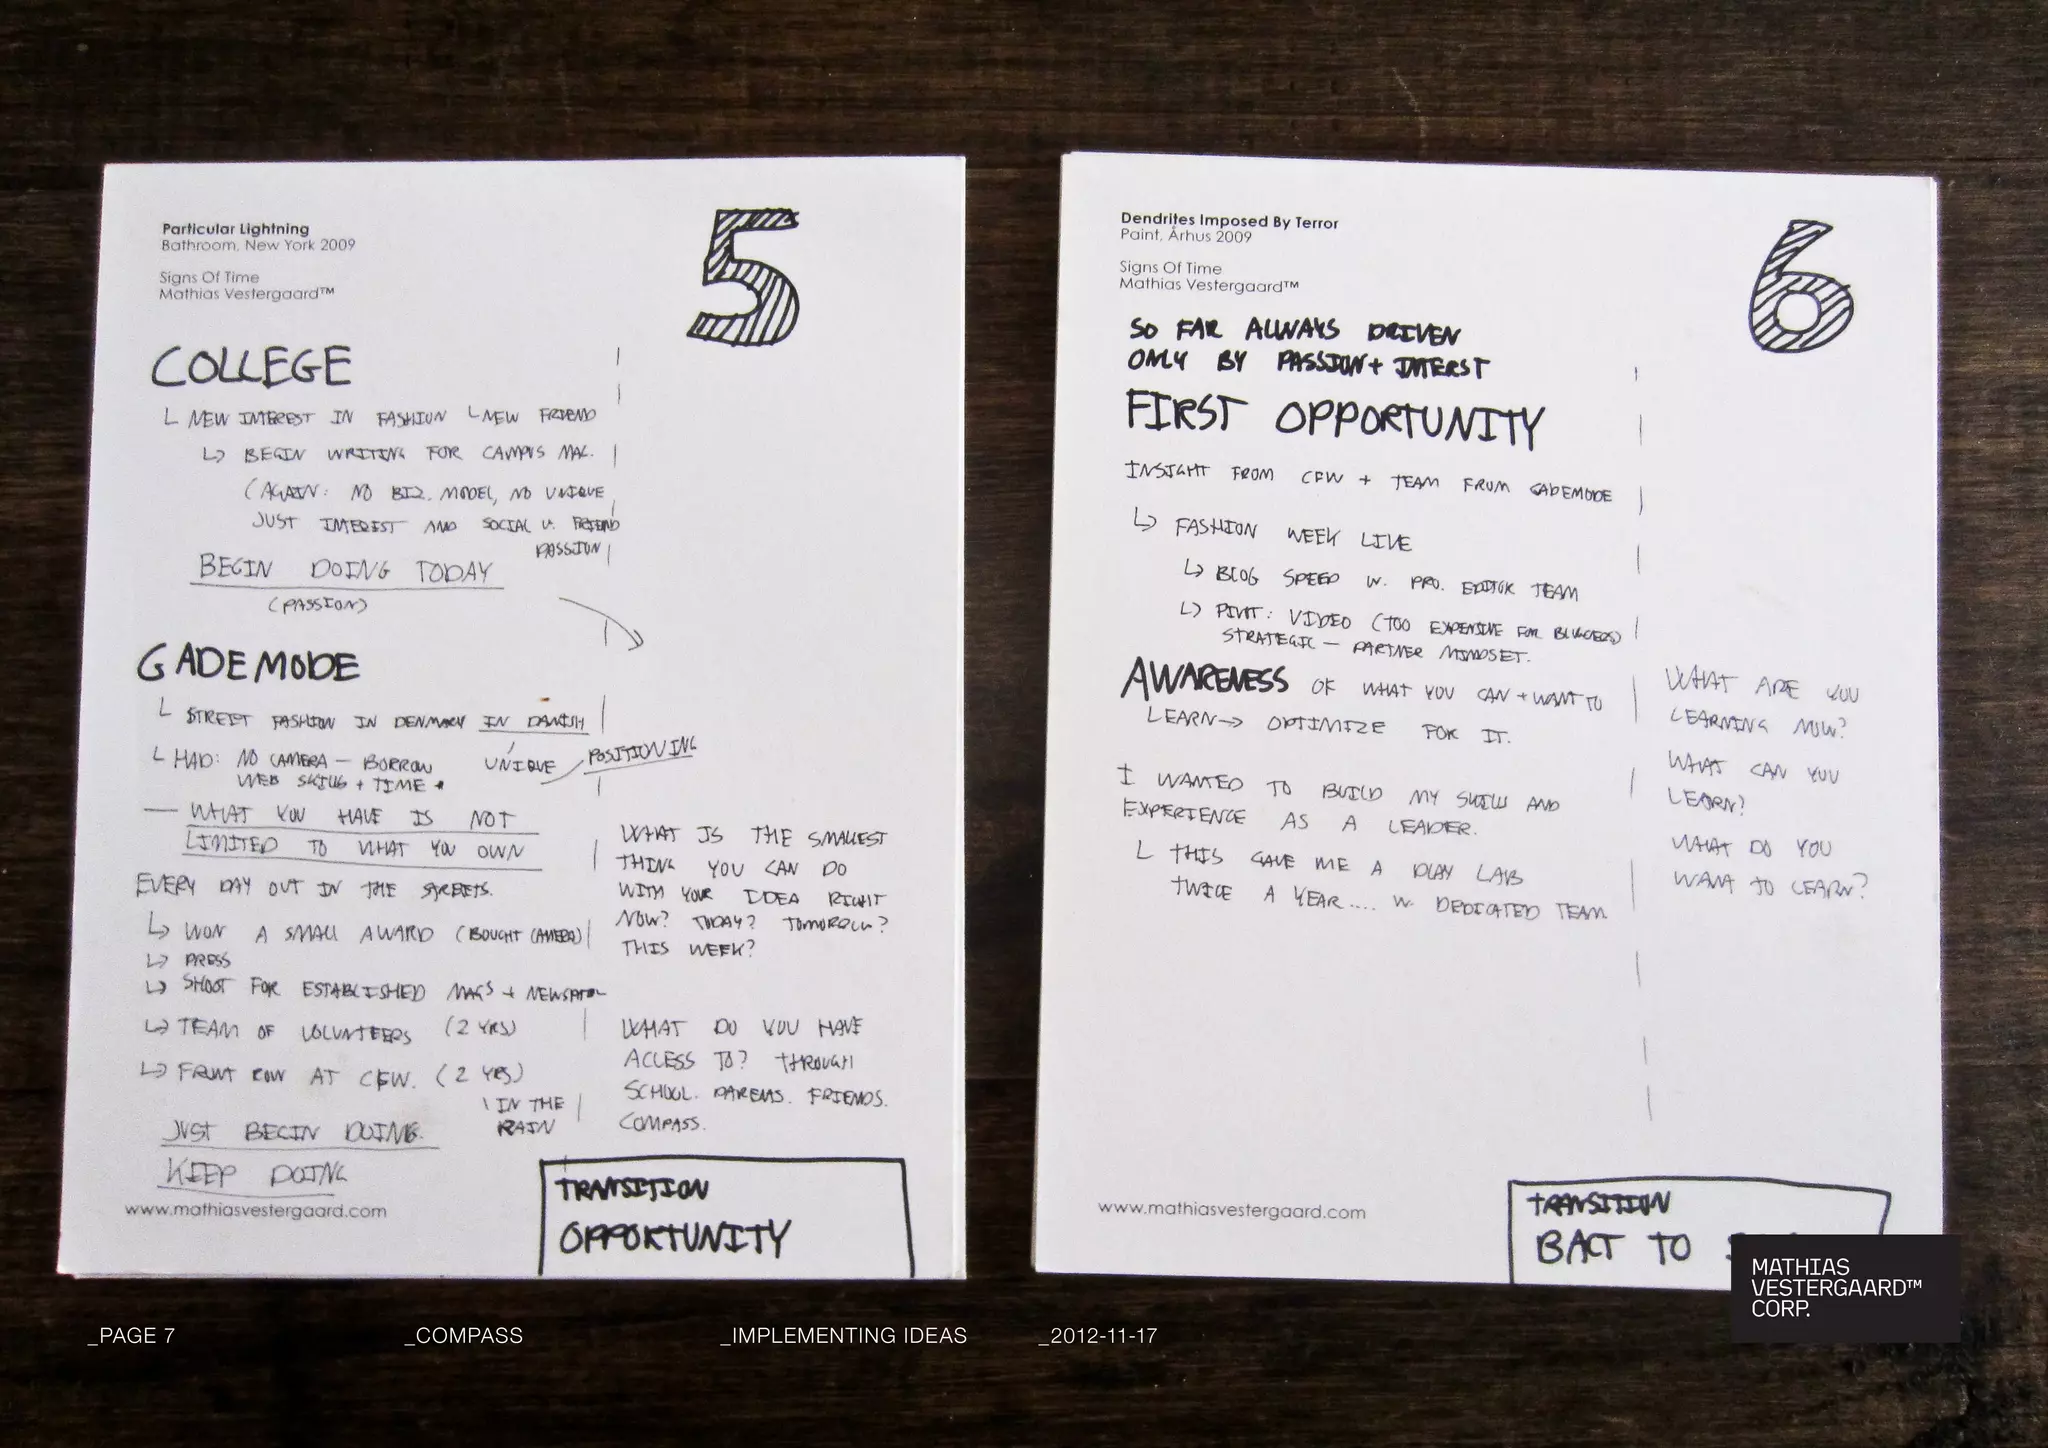 Particular Lightning
Bathroom, New York 2009
Signs Of Time
Mathias Vestergaard™
5
COLLEGE
NEW INTEREST IN FASHION └ NEW FRIEND
↳ BEGIN WRITING FOR CAMPUS MAG.
(AGAIN: NO BIZ. MODEL, NO UNIQUE
JUST INTEREST AND SOCIAL W. FRIEND
PASSION
BEGIN DOING TODAY
(PASSION)
GADEMODE
└ STREET FASHION IN DENMARK IN DANISH
└ HAD: NO CAMERA — BORROW UNIQUE POSITIONING
WEB SKILLS + TIME
— WHAT YOU HAVE IS NOT
LIMITED TO WHAT YOU OWN
EVERY DAY OUT IN THE STREETS.
↳ WON A SMALL AWARD (BOUGHT CAMERA)
↳ PRESS
↳ SHOOT FOR ESTABLISHED MAGS +
↳ TEAM OF VOLUNTEERS (2 YRS)
↳ FRONT ROW AT CFW. (2 YRS)
\ IN THE
RAIN
JUST BEGIN DOING.
KEEP DOING
WHAT IS THE SMALLEST
THING YOU CAN DO
WITH YOUR IDEA RIGHT
NOW? TODAY? TOMOROCW?
THIS WEEK?
WHAT DO YOU HAVE
ACCESS TO? THROUGH
SCHOOL. PARENS. FRIENDS.
COMPASS.
www.mathiasvestergaard.com
TRANSITION
OPPORTUNITY
Dendrites Imposed By Terror
Paint, Århus 2009
Signs Of Time
Mathias Vestergaard™
6
SO FAR ALWAYS DRIVEN
ONLY BY PASSION + INTERST
FIRST OPPORTUNITY
INSIGHT FROM CFW + TEAM FROM GADEMODE
↳ FASHION WEEK LIVE
↳ BLOG SPEED W. PRO. EDITOR TEAM
↳ PIVOT: VIDEO (TOO EXPENSIVE FOR BLOGGERS)
STRATEGIC — PARTNER MINDSET.
AWARENESS OF WHAT YOU CAN + WANT TO
LEARN → OPTIMIZE FOR IT.
I WANTED TO BUILD MY SKILL AND
EXPERIENCE AS A LEADER.
└ THIS GAVE ME A PLAY LAB
TWICE A YEAR.... W. DEDICATED TEAM.
WHAT ARE YOU
LEARNING NOW?
WHAT CAN YOU
LEARN?
WHAT DO YOU
WANT TO LEARN?
www.mathiasvestergaard.com
TRANSITION
BACT TO
MATHIAS
VESTERGAARD™
CORP.
_PAGE 7 _COMPASS _IMPLEMENTING IDEAS _2012-11-17